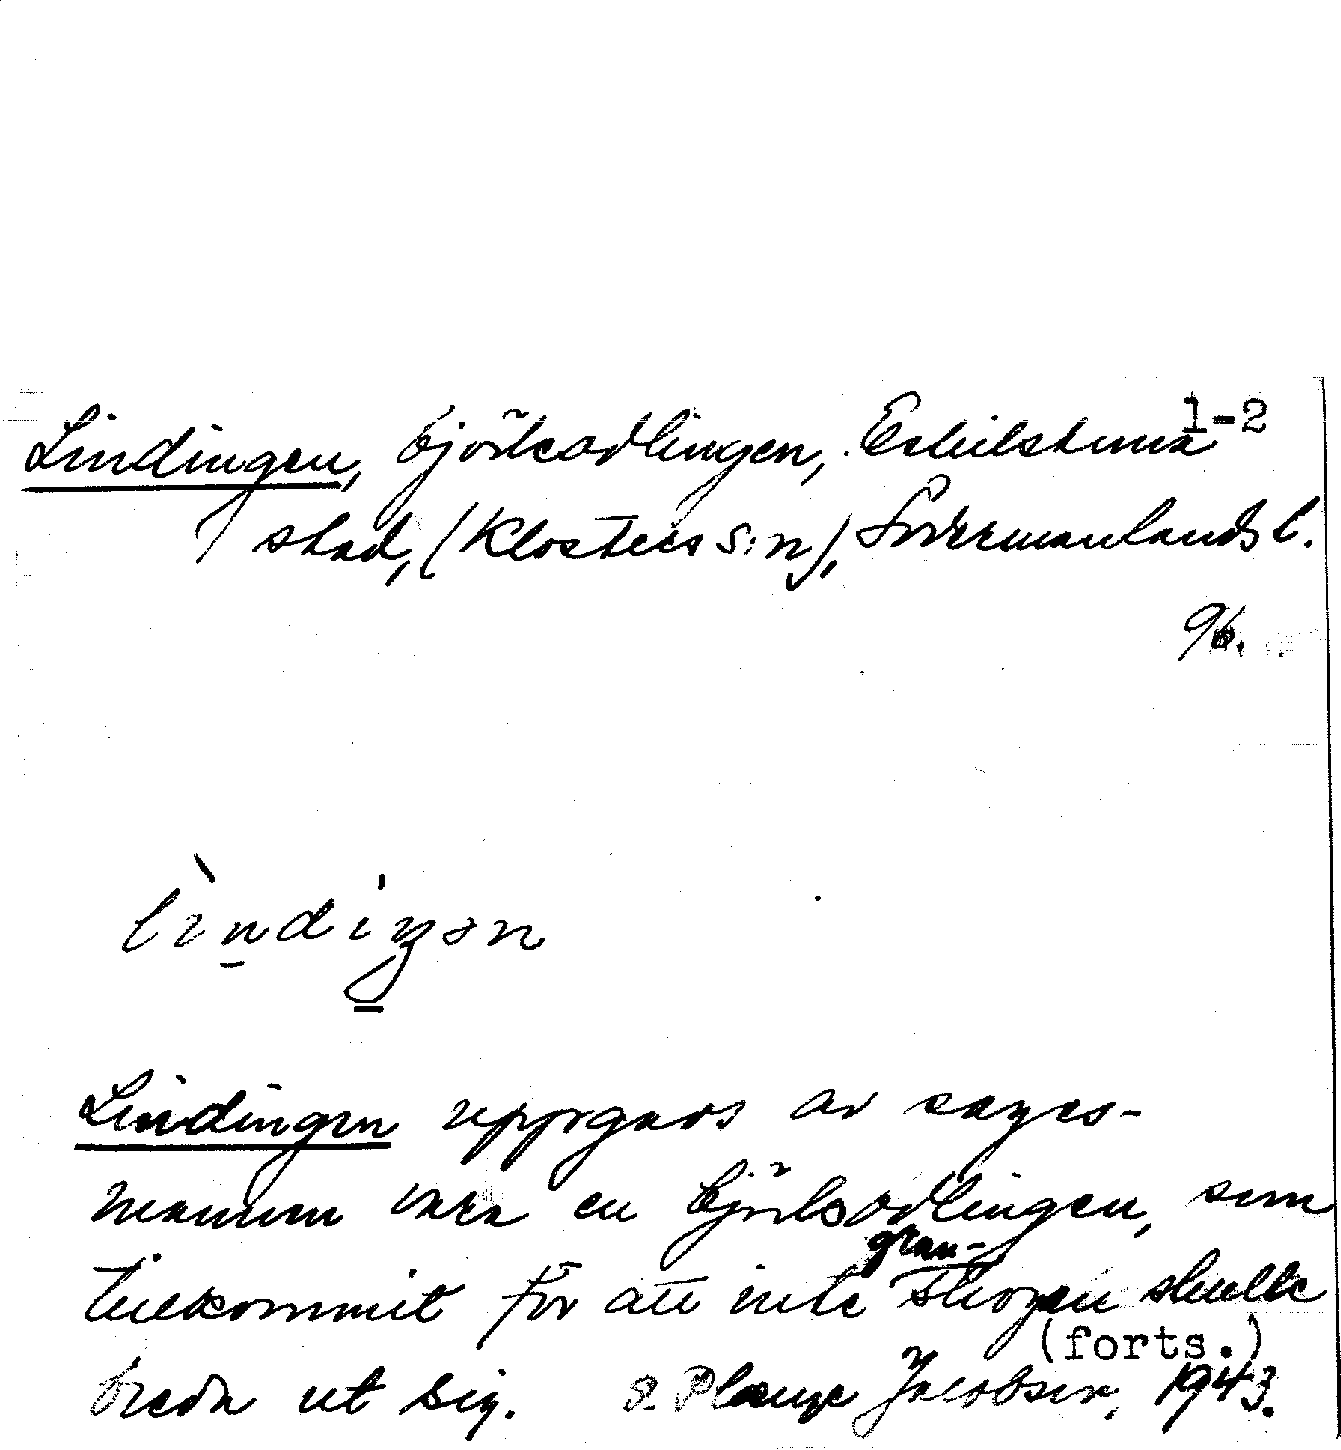 1-2
Lindingen, björkodlingen, Eskilstuna
stad, (Klosters s:n), Södermanlands l.
96.
lìndiŋən
Lindingen uppgavs av sages-
mannen vara en björkodlingen, som
tillkommit för att inte gran-skogen skulle
(forts.)
breda ut sig. S. Plænge Jacobson, 1943.